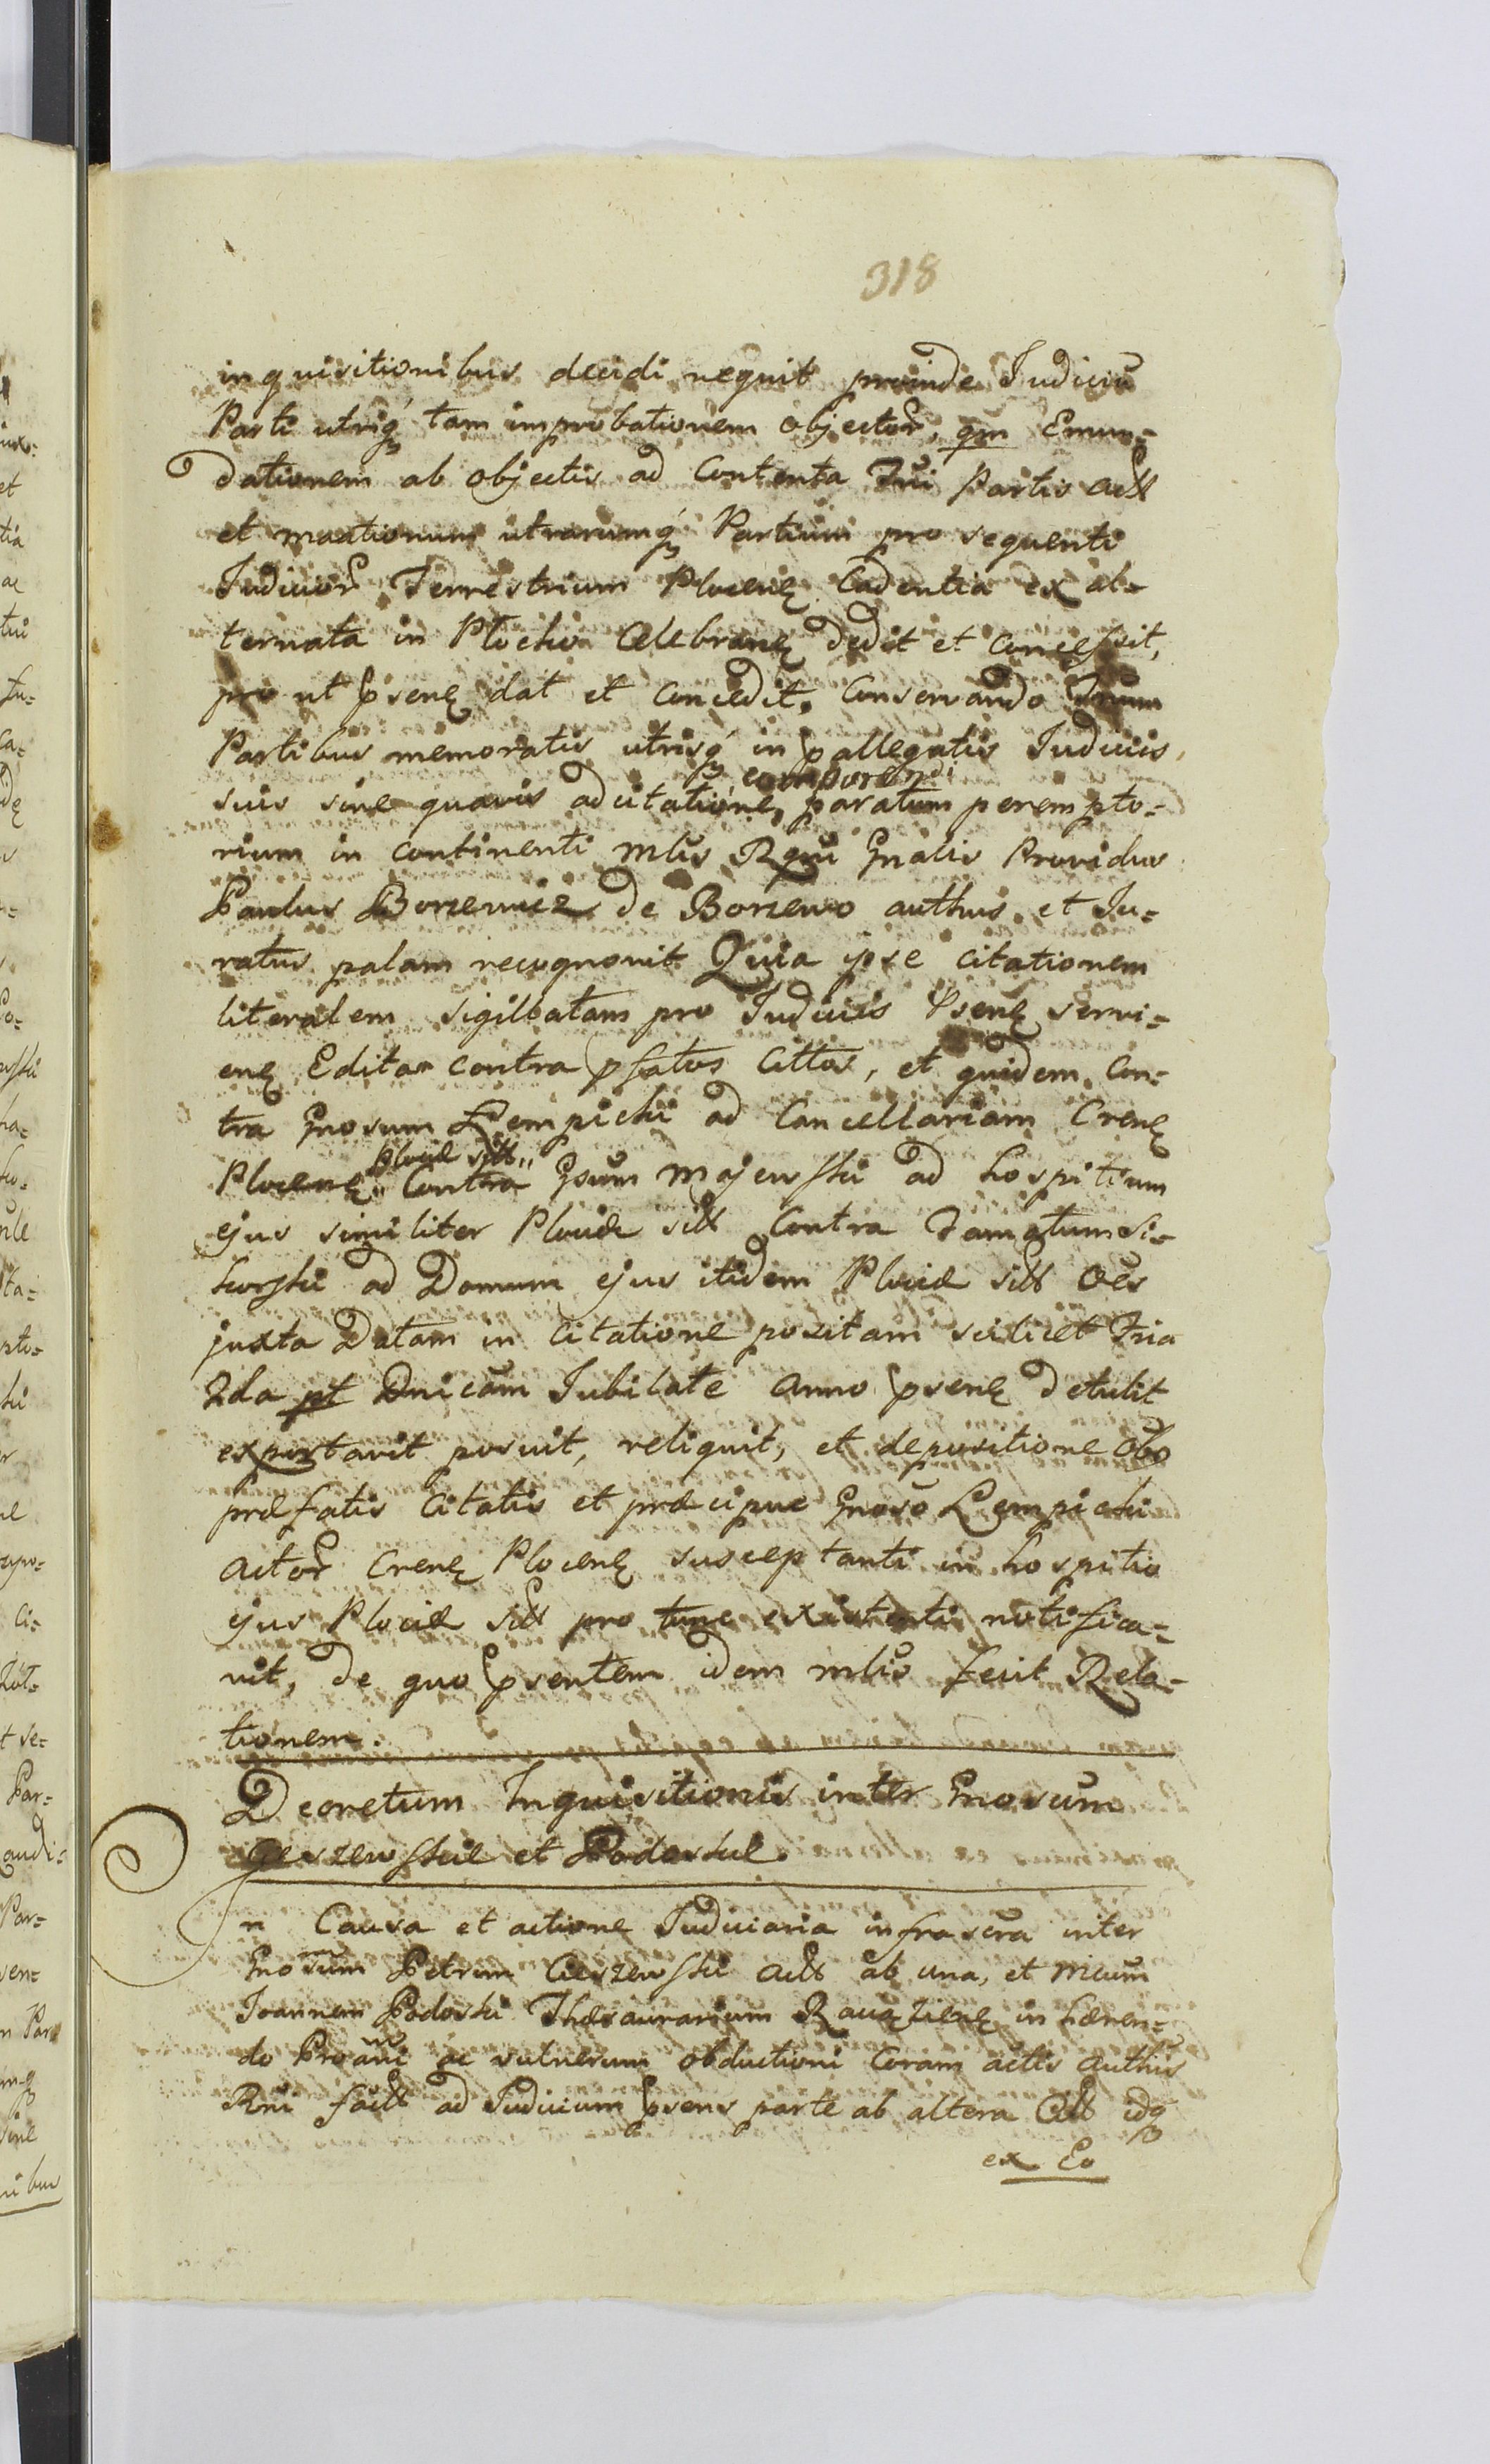 318
inquisitionibus decidi nequit proinde Judiciũ
Parti utriq́ʒ tam improbationem objector̃, qm Emun=
dationem ab objectis ad Contenta Partis
et utrarumq́ʒ Partium pro sequenti
Judicior̃ Terrestrium Plocenę Cadentia ex al=
ternata in Plocko Celebranę dedit et concessit,
pro ut psenę dat et concedit. Conservando
Partibus memoratis utrisq́ʒ in pallegatis Judiciis
comporend
suis sine quavis adcitatione, paratum perempto=
rium in continenti Mlis Rgni Gnalis Providus
Paulus Borzewicz de Borzewo authus. et Ju=
ratus palam recognovit Quia ipse citationem
literalem sigillatam pro Judiciis Psenę servi=
enę Edita contra pfatos Cittos, et quidem Con=
tra Gnosum Łempicki ad Cancellariam Crenę
Plociæ sitt"
Plocenę" Contra Gsum Majewski ad hospitium
ejus similiter Plociæ sitt Contra Famatum Si=
korski ad Domum ejus itidem Plociæ sitt Oes
juxta Datam in Citatione positam scilicet Fria
2da pt Dnicam Jubilate Anno psenę detulit
exportavit posuit, reliquit, et depositione
præfatis Citatis et præcipue Gnoso Łempicki
Actor̃ Crenę Plocenę susceptanti in hospitio
ejus Plociæ sitt pro tunc existenti notifica=
vit, de quo psentem idem mlis fecit Rela=
tionem.
Decretum Inquisitionis inter Gnosum
et Podoskie.
In Causa et actione Judiciaria infrascra inter
Gnosum Petrum ab una, et Mcum
Joannem Podoski Thesaurarium in hæren=
do ac vulnerum obductioni Coram actis authis
Rni ad Judicium psens parte ab altera idq
ex Eo